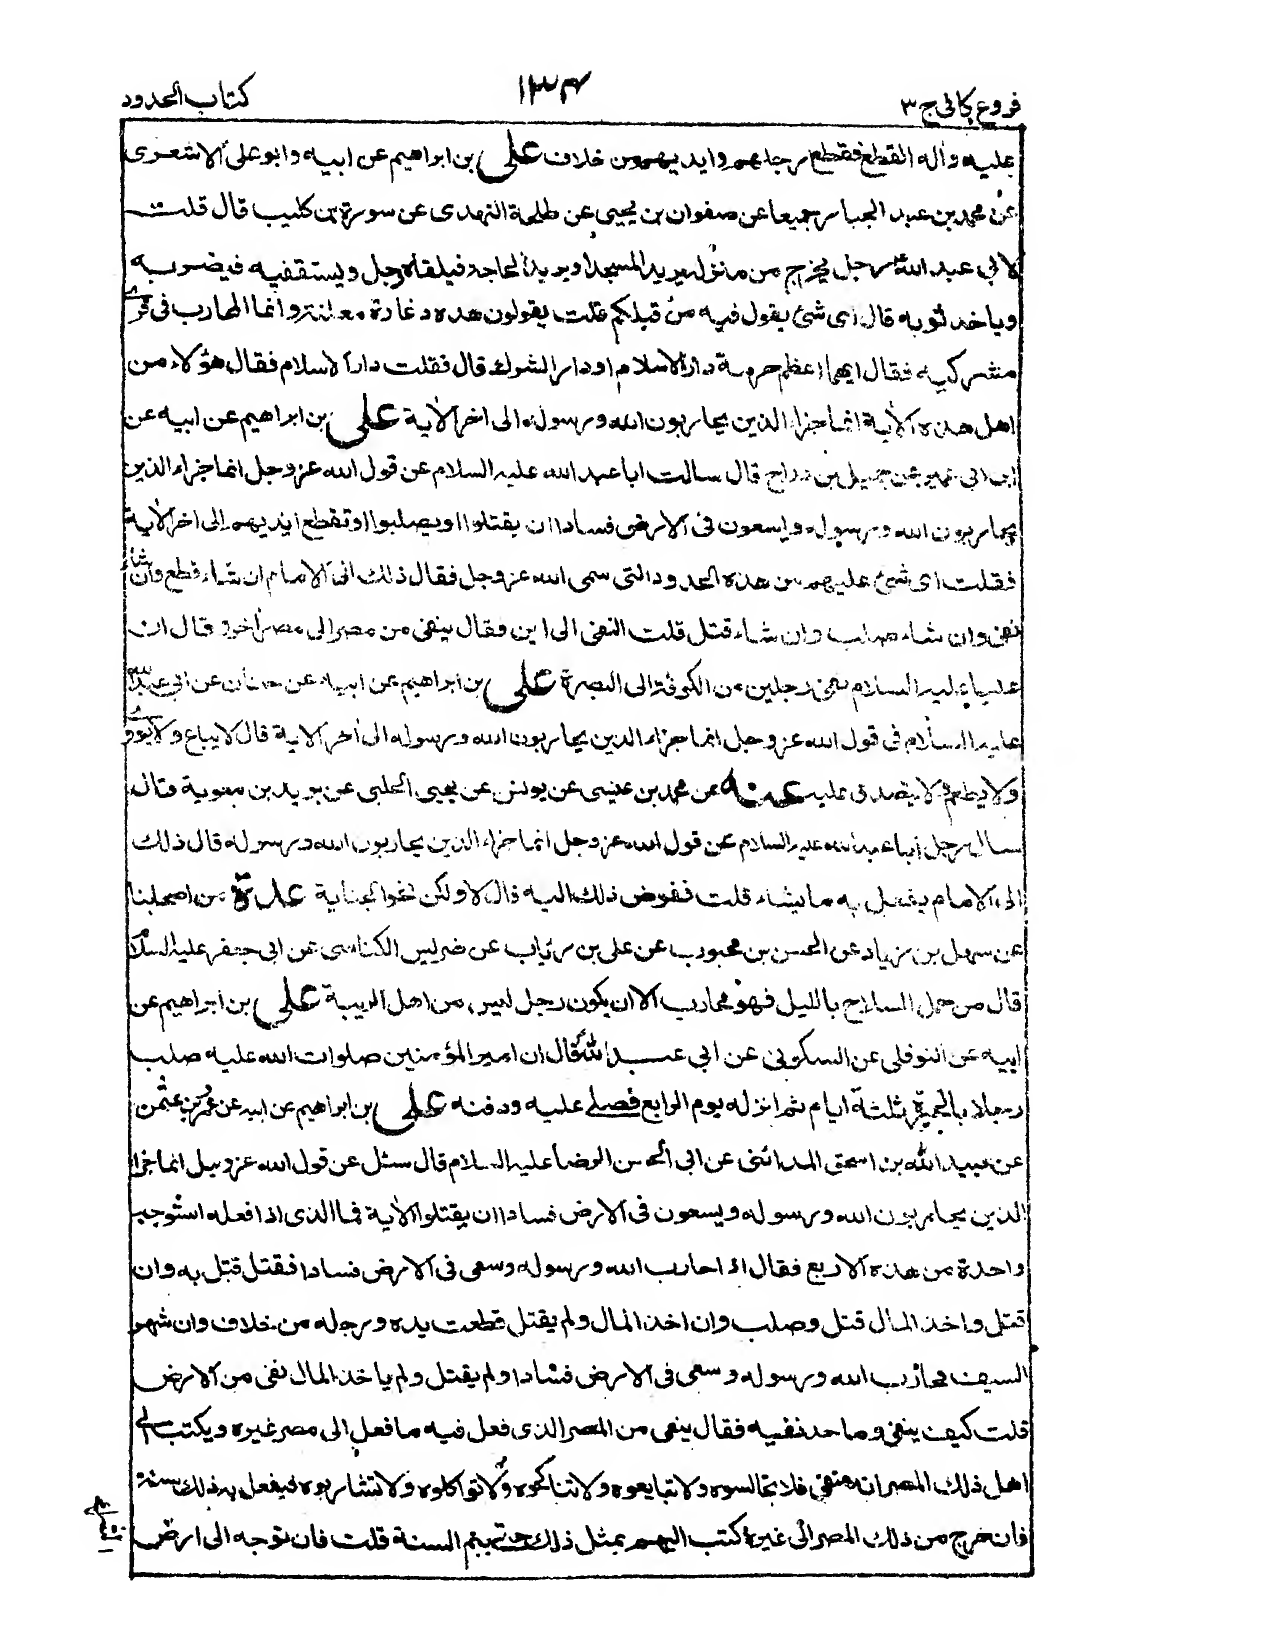 فروع كافى ج ٣
١٣۴
كتاب الحدود
عليه وآله القطع فقطع ارجلهم وايديهم من خلاف على بن ابراهيم عن ابيه وابو على الاشعرى
عن محمد بن عبد الجبار جميعا عن صفوان بن يحيى عن طلحة النهدى عن سورة بن كليب قال قلت
لابي عبد الله رجل يخرج من منزله يريد المسجد او يريد الحاجة فيلقاه رجل ويستقفيه فيضربه
وياخذ ثوبه قال اى شئ يقول فيه من قبلكم قلت يقولون هذه دغارة معلنة وانما المحارب فى قرى
مشركيه فقال ايهما اعظم حرمة دار الاسلام او دار الشرك قال فقلت دار الاسلام فقال هؤلاء من
اهل هذه الآية انما جزاء الذين يحاربون الله ورسوله الى اخر الآية على بن ابراهيم عن ابيه عن
ابن ابى عمير عن جميل بن دراج قال سالت ابا عبد الله عليه السلام عن قول الله عز وجل انما جزاء الذين
يحاربون الله ورسوله ويسعون فى الارض فسادا ان يقتلوا او يصلبوا او تقطع ايديهم الى اخر الآية
فقلت اى شئ عليهم من هذه الحدود التى سمى الله عز وجل فقال ذلك الى الامام ان شاء قطع وان شاء
نفى وان شاء صلب وان شاء قتل قلت النفى الى اين فقال ينفى من مصر الى مصر آخر وقال ان
عليا عليه السلام نفى رجلين من الكوفة الى البصرة على بن ابراهيم عن ابيه عن حنان عن ابى عبد الله
عليه السلام فى قول الله عز وجل انما جزاء الذين يحاربون الله ورسوله الى آخر الاية قال لا يباع ولا يؤوى
ولا يطعم ولا يتصدق عليه عنه عن محمد بن عيسى عن يونس عن يحيى الحلبى عن بريد بن معوية قال
سال رجل ابا عبد الله عليه السلام عن قول الله عز وجل انما جزاء الذين يحاربون الله ورسوله قال ذلك
الى الامام يفعل به ما يشاء قلت ففوض ذلك اليه قال لا ولكن نحو الجناية عدة من اصحابنا
عن سهل بن زياد عن الحسن بن محبوب عن على بن رئاب عن ضريس الكناسى عن ابى جعفر عليه السلام
قال من حمل السلاح بالليل فهو محارب الا ان يكون رجل ليس من اهل الريبة على بن ابراهيم عن
ابيه عن النوفلى عن السكونى عن ابى عبد الله قال ان امير المؤمنين صلوات الله عليه صلب
رجلا بالحيرة ثلثة ايام ثم انزله يوم الرابع فصلى عليه ودفنه على بن ابراهيم عن ابيه عن عمرو بن عثمن
عن عبيد الله بن اسحق المدائنى عن ابى الحسن الرضا عليه السلام قال سئل عن قول الله عز وجل انما جزا
الذين يحاربون الله ورسوله ويسعون فى الارض فسادا ان يقتلوا الآية فما الذى اذا فعله استوجب
واحدة من هذه الاربع فقال اذا حارب الله ورسوله وسعى فى الارض فسادا فقتل قتل به وان
قتل واخذ المال قتل وصلب وان اخذ المال ولم يقتل قطعت يده ورجله من خلاف وان شهر
السيف فحارب الله ورسوله وسعى فى الارض فسادا ولم يقتل ولم ياخذ المال نفى من الارض
قلت كيف ينفى وما حد نفيه فقال ينفى من المصر الذى فعل فيه ما فعل الى مصر غيره ويكتب الى
اهل ذلك المصر انه منفى فلا تجالسوه ولا تبايعوه ولا تناكحوه ولا تواكلوه ولا تشاربوه فيفعل به ذلك سنة
فان خرج من ذلك المصر الى غيره كتب اليهم بمثل ذلك حتى يتم السنة قلت فان توجه الى ارض